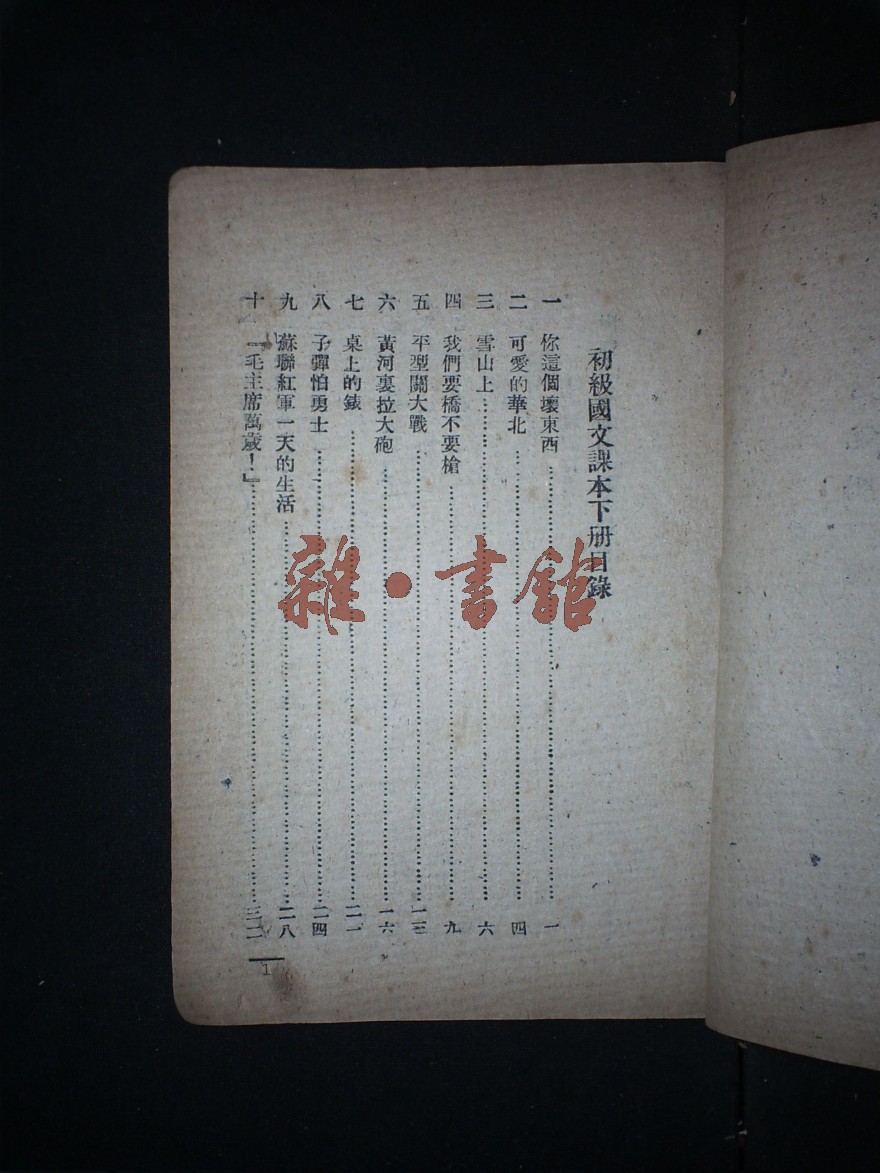 初級國文課本下册目錄
一 你這個壞東西……一
二 可愛的華北……四
三 雪山上……六
四 我們要橋不要槍……九
五 平型關大戰……一三
六 黃河裏拉大砲……一六
七 桌上的錶……二一
八 子彈怕勇士……二四
九 蘇聯紅軍一天的生活……二八
十 『毛主席萬歲！』……三二
1
雜·書館